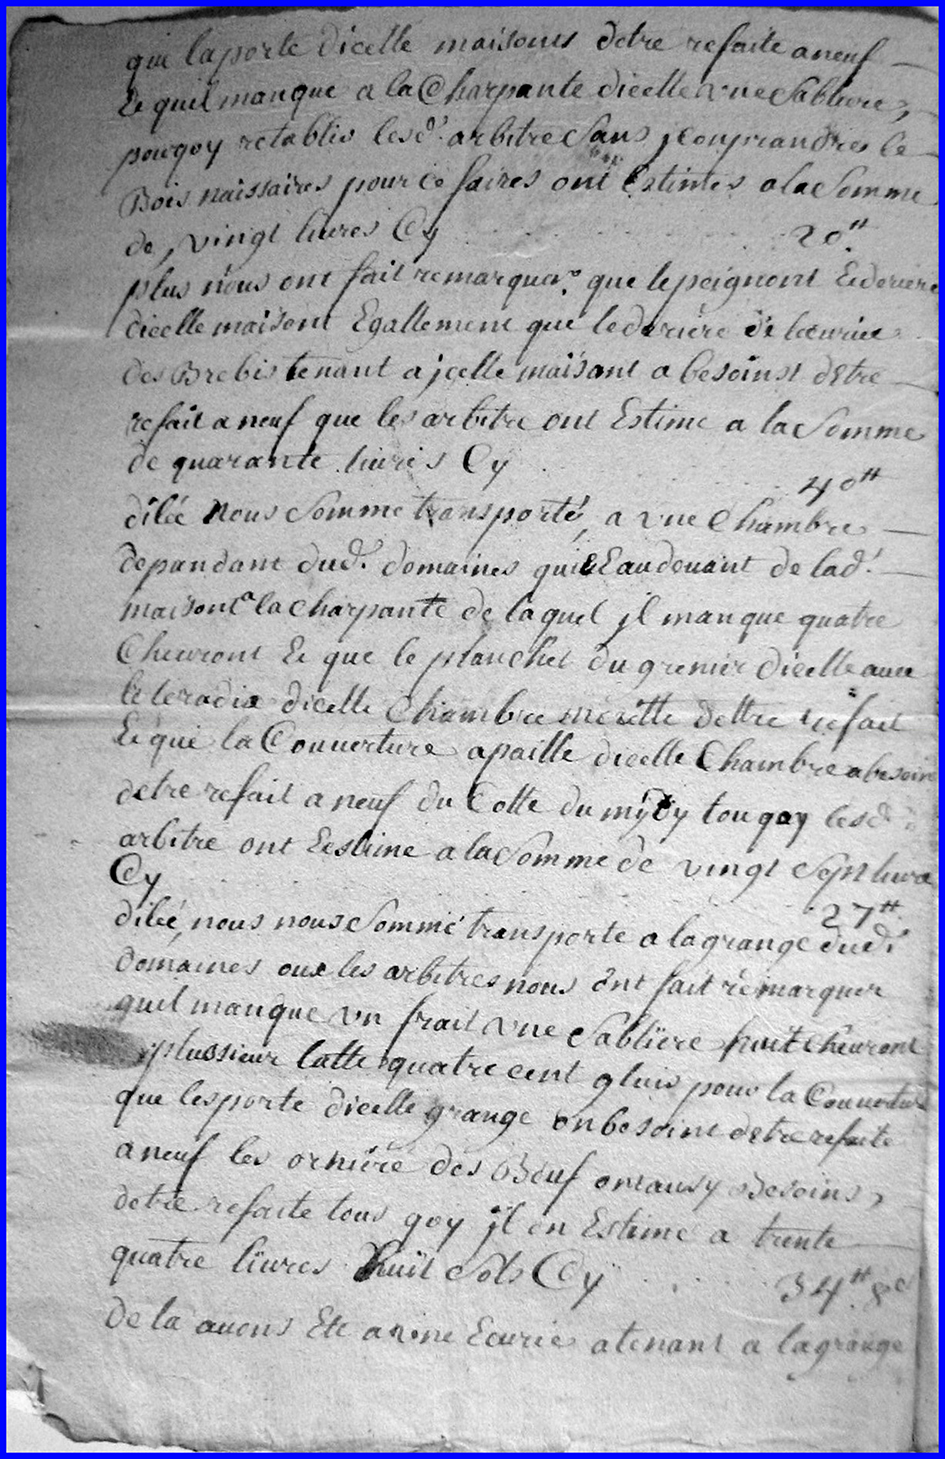 que laporte dicelle maisons detre refaite aneuf
Et quil manque a la Charpante dicelle une Sabliere,
pourqoy retablir lesd.s arbitre Sans j Conprandres le
Bois naissaires pour ce faires ont Estimes ala Somme
de, vingt livres Cy 20.tt
plus nous ont fait remarquer. que le peignont Ederiere
dicelle maisont Egallement que lederiere de
des Brebis tenant a jcelle maisont a besoinst dEtre
refait aneuf que les arbitre ont Estime a la Somme
de quarante livres Cy
40tt
dilée Nous Somme transporté, a une Chambre
dependant dud.t domaines quiEl Eaudevant de lad.t
maisont a la Charpante de laquel jl manque quatre
Chevront Et que le planchet du grenier dicelle avec
le dicelle Chambre meritte dettre refait
Et que la Couverture apaille dicelle Chambre abesoin
detre refait a neuf du Cotte du mydy tou qoy lesd
arbitre ont Eestime a la Somme de vingt Sept livre
Cy 27tt
dilée, nous nous Sommé transporte a lagrange dud.t
domaines oux les arbitres nous ont fait remarquer
quil manque un frait une Sabliere huit Chevront
plussieur latte quatre cent gluis pour la Couverture
que lesporte dicelle grange onbesoint detre refaite
aneuf les orniere des Beuf onausy Besoins,
detre refaite tous qoy jl on Estimé a trente
quatre livres huit Sols Cy 34.tt 8s
De la avons Ete a une Ecurie atenant a lagrange